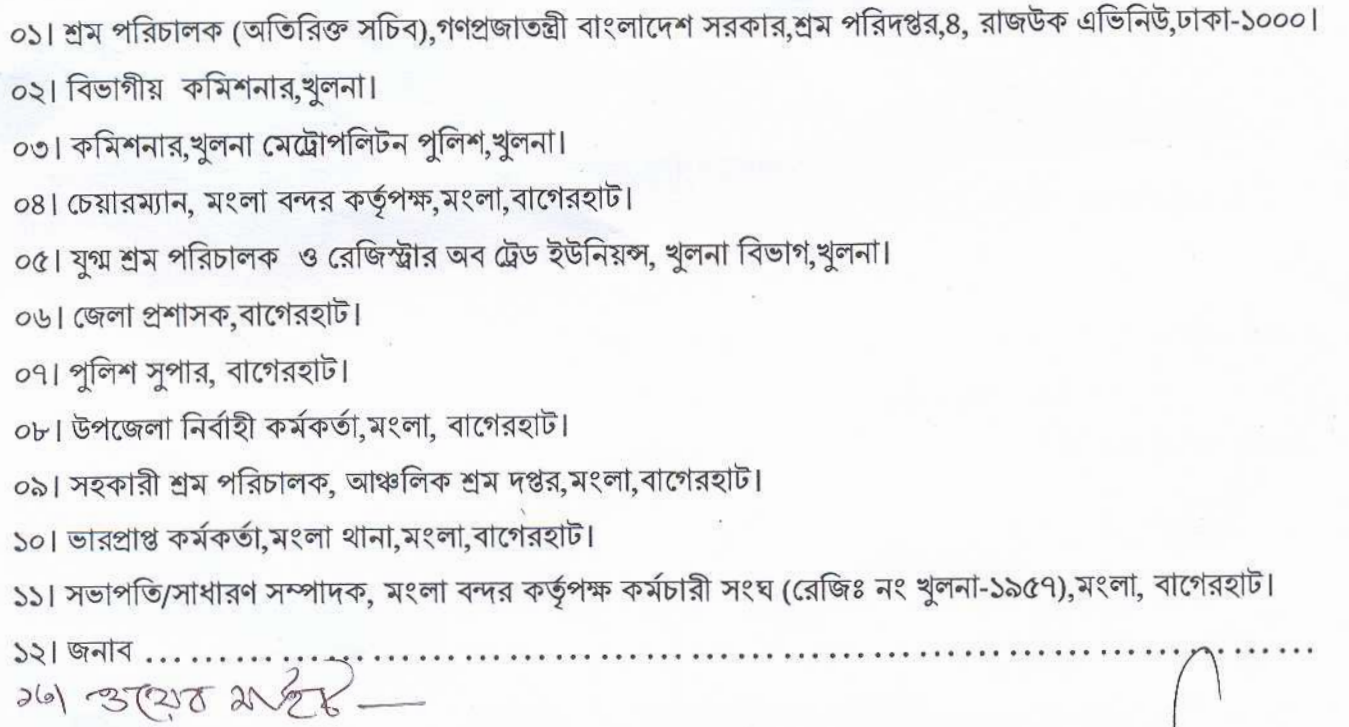 ০১। শ্রম পরিচালক (অতিরিক্ত সচিব),গণপ্রজাতন্ত্রী বাংলাদেশ সরকার,শ্রম পরিদপ্তর,৪, রাজউক এভিনিউ,ঢাকা-১০০০।
০২। বিভাগীয় কমিশনার,খুলনা।
০৩। কমিশনার,খুলনা মেট্রোপলিটন পুলিশ,খুলনা।
০৪। চেয়ারম্যান, মংলা বন্দর কর্তৃপক্ষ,মংলা,বাগেরহাট।
০৫। যুগ্ম শ্রম পরিচালক ও রেজিস্ট্রার অব ট্রেড ইউনিয়ন্স, খুলনা বিভাগ,খুলনা।
০৬। জেলা প্রশাসক,বাগেরহাট।
০৭। পুলিশ সুপার, বাগেরহাট।
০৮। উপজেলা নির্বাহী কর্মকর্তা,মংলা, বাগেরহাট।
০৯। সহকারী শ্রম পরিচালক, আঞ্চলিক শ্রম দপ্তর,মংলা,বাগেরহাট।
১০। ভারপ্রাপ্ত কর্মকর্তা,মংলা থানা,মংলা,বাগেরহাট।
১১। সভাপতি/সাধারণ সম্পাদক, মংলা বন্দর কর্তৃপক্ষ কর্মচারী সংঘ (রেজিঃ নং খুলনা-১৯৫৭),মংলা, বাগেরহাট।
১২। জনাব ..........................................................................................
১৩। ওয়েব সাইট —